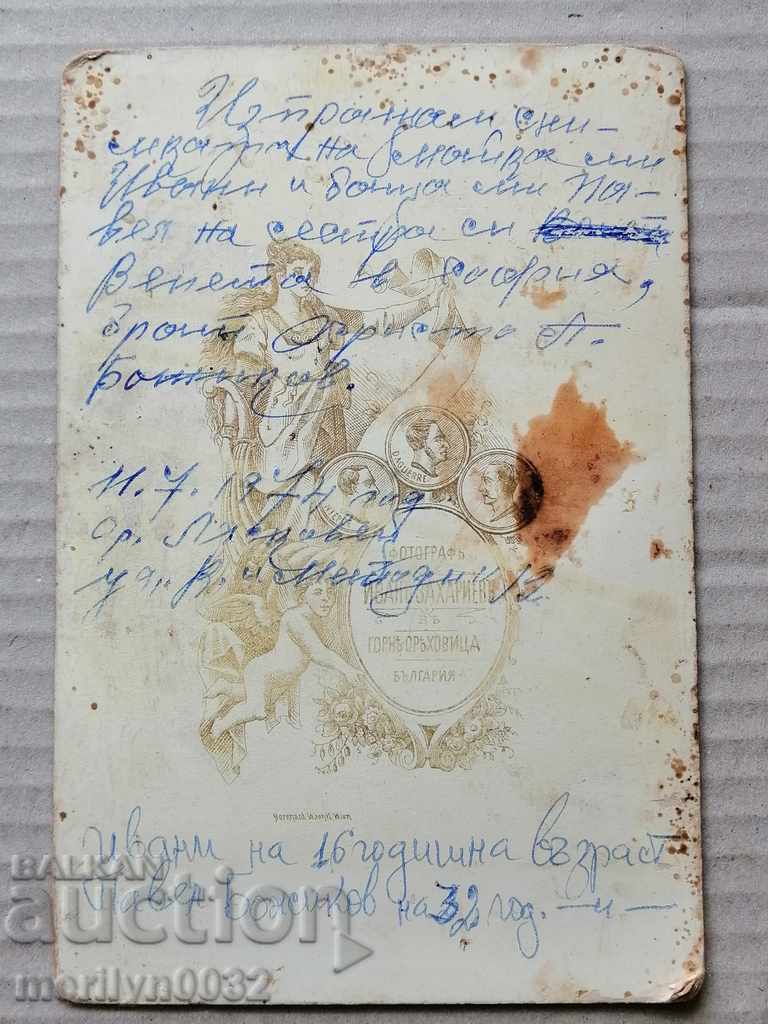 Изпращам сни-
мката на майка ми
Ивани и баща ми Па-
вел на сестра си
Венета в София,
брат Христо П.
Божиков.
11.7.1974 год
гр. Лясковец
ул. К. и Методий 12
DAGUERRE
ФОТОГРАФЪ
ИВАНЪ ЗАХАРИЕВЪ
ВЪ
ГОРНѢ ОРѢХОВИЦА
БЪЛГАРИЯ
Ивани на 16 годишна възраст
Павел Божиков на 32 год. —„—
BALKAN
auction
merilyn0032